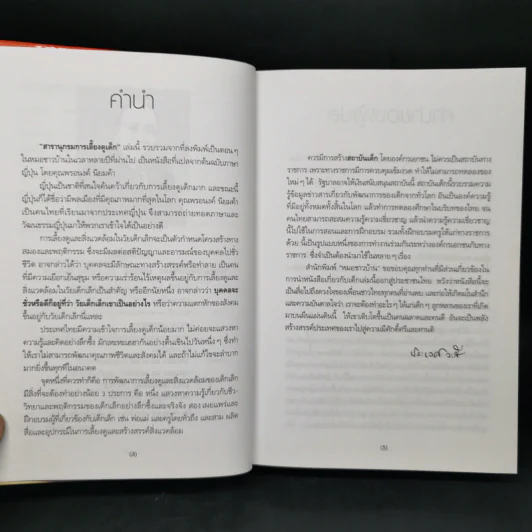 คำนำ
"สารานุกรมการเลี้ยงดูเด็ก" เล่มนี้ รวบรวมจากที่ลงพิมพ์เป็นตอน ๆ
ในหมอชาวบ้านในเวลาหลายปีที่ผ่านไป เป็นหนังสือที่แปลจากต้นฉบับภาษา
ญี่ปุ่น โดยคุณพรอนงค์ นิยมค้า
ญี่ปุ่นเป็นชาติที่สนใจค้นคว้าเกี่ยวกับการเลี้ยงดูเด็กมาก และขณะนี้
ญี่ปุ่นก็ได้ชื่อว่ามีพลเมืองที่มีคุณภาพมากที่สุดในโลก คุณพรอนงค์ นิยมค้า
เป็นคนไทยที่เรียนมาจากประเทศญี่ปุ่น จึงสามารถถ่ายทอดภาษาและ
วัฒนธรรมญี่ปุ่นมาให้พวกเราเข้าใจได้เป็นอย่างดี
การเลี้ยงดูและสิ่งแวดล้อมในวัยเด็กเล็กจะเป็นตัวกำหนดโครงสร้างทาง
สมองและพฤติกรรม ซึ่งจะมีผลต่อสติปัญญาและอารมณ์ของบุคคลไปชั่ว
ชีวิต อาจกล่าวได้ว่า บุคคลจะมีลักษณะทางสร้างสรรค์หรือทำลาย เป็นคน
ที่มีความเยือกเย็นสุขุม หรือเร่าร้อนไร้เหตุผลขึ้นอยู่กับการเลี้ยงดูและ
สิ่งแวดล้อมในวัยเด็กเล็กเป็นสำคัญ หรืออีกนัยหนึ่ง อาจกล่าวว่า บุคคลจะ
ชั่วหรือดีก็อยู่ที่ว่า วัยเด็กเล็กเขาเป็นอย่างไร หรือว่าความแตกหักของสังคม
ขึ้นอยู่กับวัยเด็กเล็กนี่แหละ
ประเทศไทยมีความเข้าใจการเลี้ยงดูเด็กน้อยมาก ไม่ค่อยจะแสวงหา
ความรู้และคิดอย่างลึกซึ้ง มักเหมาะเหยาะกันอย่างตื้นเขินไปวันหนึ่ง ๆ ซึ่งทำ
ให้เราไม่สามารถพัฒนาคุณภาพชีวิตและสังคมได้ และถ้าไม่แก้ไขจะลำบาก
มากยิ่งขึ้นทุกทีในอนาคต
จุดหนึ่งที่ควรทำก็คือ การพัฒนาการเลี้ยงดูและสิ่งแวดล้อมของเด็กเล็ก
มีสิ่งที่จะต้องทำอย่างน้อย ๓ ประการ คือ หนึ่ง แสวงหาความรู้เกี่ยวกับชีว-
วิทยาและพฤติกรรมของเด็กเล็กอย่างลึกซึ้งและจริงจัง สอง เผยแพร่และ
ฝึกอบรมผู้ที่เกี่ยวข้องกับเด็กเล็ก เช่น พ่อแม่ และครูโดยทั่วถึง และสาม ผลิต
สื่อและอุปกรณ์ในการเลี้ยงดูและสร้างสรรค์สิ่งแวดล้อม
(4)
ควรมีการสร้างสถาบันเด็ก โดยองค์กรเอกชน ไม่ควรเป็นสถาบันทาง
ราชการ เพราะทางราชการมีการควบคุมเข้มงวด ทำให้ไม่สามารถทดลองของ
ใหม่ ๆ ได้ รัฐบาลอาจให้เงินสนับสนุนสถาบันนี้ สถาบันเด็กนี้รวบรวมความ
รู้ข้อมูลข่าวสารเกี่ยวกับการพัฒนาการของเด็กจากทั่วโลก อันเป็นองค์ความรู้
ที่มีอยู่ทั้งหมดทั้งสิ้นในโลก แล้วทำการทดลองศึกษาในบริบทของไทย จน
คนไทยสามารถสะสมความรู้ความเชี่ยวชาญ แล้วนำความรู้ความเชี่ยวชาญ
นี้ไปใช้ในการสอนและการฝึกอบรม รวมทั้งฝึกอบรมครูให้แก่ทางราชการ
ด้วย นี้เป็นรูปแบบหนึ่งของการทำงานร่วมกันระหว่างองค์กรเอกชนกับทาง
ราชการ ซึ่งจำเป็นต้องนำมาใช้ในหลาย ๆ เรื่อง
สำนักพิมพ์ "หมอชาวบ้าน" ขอขอบคุณทุกท่านที่มีส่วนเกี่ยวข้องใน
การนำหนังสือเกี่ยวกับเด็กเล่มนี้ออกสู่ประชาชนไทย หวังว่าหนังสือนี้จะ
เป็นสื่อไปถึงดวงใจของเพื่อนชาวไทยทุกคนที่อ่าน และก่อให้เกิดในสำนึก
และความบันดาลใจว่า เราจะต้องทำอะไร ๆ ให้แก่เด็ก ๆ ลูกหลานของเราที่เกิด
มาบนผืนแผ่นดินนี้ ให้เขาเติบโตขึ้นเป็นคนฉลาดและคนดี อันจะเป็นพลัง
สร้างสรรค์ประเทศของเราไปสู่ความมีศักดิ์ศรีและศานติ
ประเวศ วะสี
(5)